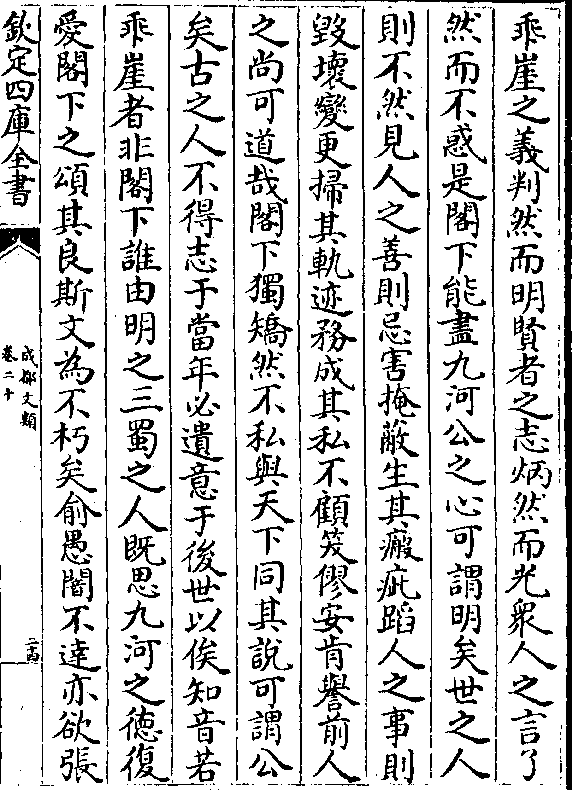 乖崖之義判然而明賢者之志炳然而光衆人之言了
然而不惑是閣下能盡九河公之心可謂明矣世之人
則不然見人之善則忌害掩蔽生其瘢疵蹈人之事則
毀壞變更掃其軌迹務成其私不顧笑僇安肯譽前人
之尚可道哉閣下獨矯然不私與天下同其說可謂公
矣古之人不得志于當年必遺意于後世以俟知音若
乖崖者非閣下誰由明之三蜀之人既思九河之徳復
愛閣下之頌其良斯文為不朽矣俞愚闇不逹亦欲張
欽定四庫全書
成都文類
卷二十
二十四